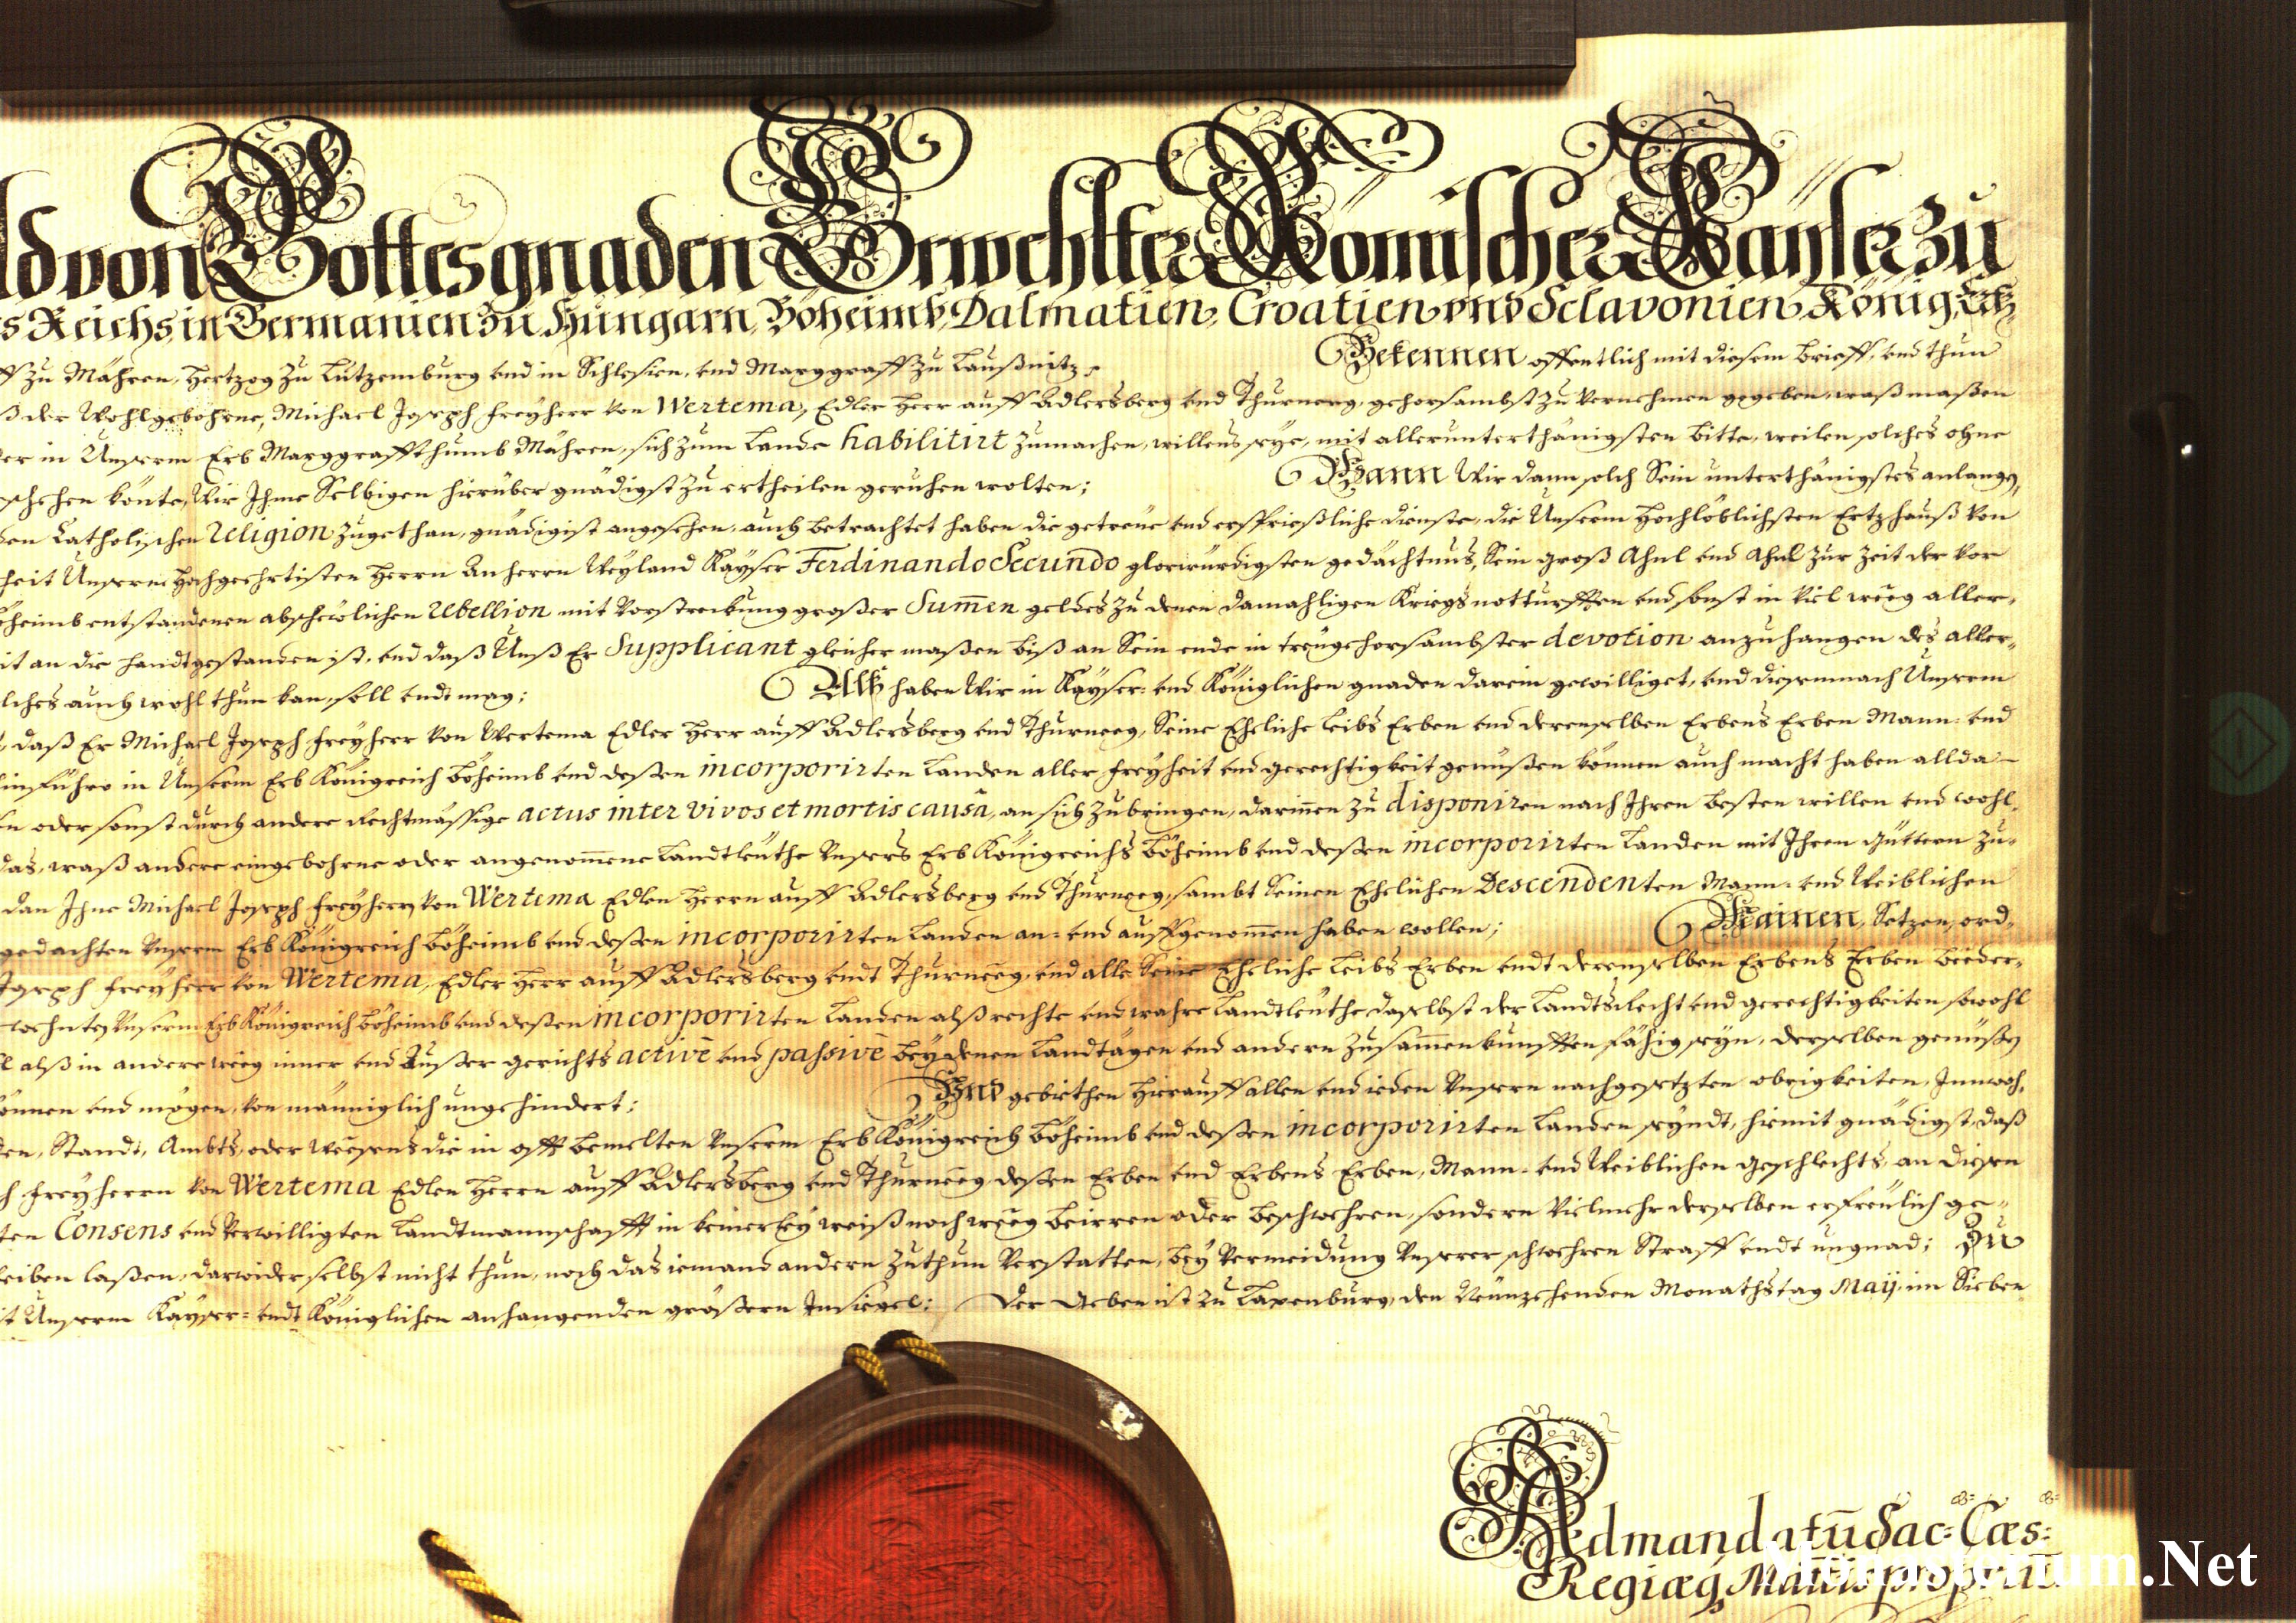 ld von Gottes gnaden Erwehlter Römischer Kayser zu
s Reichs, in Germanien zu Hungarn, Böheimb, Dalmatien, Croatien, und Sclavonien, König, Ertz
ff zu Mähren, Hertzog zu Lützemburg und in Schlesien, und Marggraff zu Laußnitz. Bekennen offentlich mit diesem brieff, und thun
ß der Wohlgebohrne, Michael Joseph freyherr von Wertema, Edler Herr auff Adlersberg und Thurnerg, gehorsambst zu vernehmen gegeben, waß maßen
er in Unserm Erb Marggraffthumb Mähren, sich zum Lande habilitirt zumachen, willens seye, mit allerunterthänigsten bitte, weilen solches ohne
schehen könte, Wir Ihme Selbigen hierüber gnädigst zu ertheilen geruhen wolten; Wann Wir dann solch Sein unterthänigstes anlangen,
en Catholischen Religion zugethan, gnädigist angesehen, auch betrachtet haben die getreue und ersprießliche dienste, die Unserm Hochlöblichsten Ertzhauß von
heit Unserm Hochgeehrtisten Herrn Anherrn Weyland Kayser Ferdinando Secundo glorwürdigsten gedächtnus, Sein groß Ahnl und Ahnl zur Zeit der vor
öheimb entstandenen abscheülichen Rebellion mit vorstreckung großer Sum̄en geldes zu denen damahligen Kriegsnotturfften und sonst in viel weeg aller-
it an die handt gestanden ist, und daß Unß Er Supplicant gleicher maßen biß an Sein ende in treügehorsambster devotion anzuhangen des aller-
lches auch wohl thun kan, soll undt mag; Alß haben Wir in Kayser- und Königlichen gnaden darein gewilliget, und diesemnach Unserm
, daß Er Michael Joseph freyherr von Wertema Edler Herr auff Adlersberg und Thurneeg, Seine Eheliche leibs Erben und derenselben Erbens Erben Mann- und
hinführo in Unserm Erb Königreich Böheimb und deßen incorporirten Landen aller freyheit und gerechtigkeit genüßen können auch macht haben allda
n oder sonst durch andere rechtmässige actus inter vivos et mortis causâ, an sich zubringen, darin̄en zu disponiren nach Ihren besten willen und wohl-
das, waß andere eingebohrne oder angenom̄ene Landtleüthe Unsers Erb Königreichs Böheimb und deßen incorporirten Landen mit Ihren Güttern zu-
dan Ihne Michael Joseph freyherrn von Wertema Edlen Herrn auff Adlersberg und Thurneeg, sambt Seinen Ehelichen Descendenten Mann- und Weiblichen
gedachten Unserm Erb Königreich Böheimb und deßen incorporirten Landen an- und auffgenom̄en haben wollen; Mainen, Setzen, ord-
Joseph freyherr von Wertema, Edler Herr auff Adlersberg undt Thurneeg, und alle Seine Eheliche leibs Erben undt derenselben Erbens Erben bieder-
wehnten Unserm Erb Königreich Böheimb und deßen incorporirten Landen alß rechte und wahre Landtleüthe daselbst der Landtsrecht und gerechtigkeiten sowohl
l alß in andere weeg inner und Außer gerichts activè und passivè bey denen Landtägen und andern zusam̄enkunfften fähig seyn, derselben genüßen
önnen und mögen, von männiglich ungehindert; Und gebiethen hierauff allen und ieden Unsern nachgesetzten obrigkeiten, Innwoh-
en, Standt, Ambts, oder weesens die in offt bemelten Unserm Erb Königreich Böheimb und deßen incorporirten Landen seyndt, hiemit gnädigst, daß
h freyherrn von Wertema Edlen Herrn auff Adlersberg und Thurneeg deßen Erben und Erbens Erben, Mann- und Weiblichen geschlechts, an diesen
ten Consens und verwilligten Landtmannschafft in keinerley weiß noch weeg beirren oder beschwehren, sondern vielmehr derselben erfreülich ge-
leiben laßen, darwider selbst nicht thun, noch das iemand andern zuthun verstatten, bey vermeidung Unserer schwehren Straff undt ungnad; Zu
it Unserm Kayser- undt Königlichen anhangenden größern Insiegel; Der Geben ist zu Laxenburg, den Neünzehenden Monathstag Maij, im Sieben
Ad mandatū Sac: Cæs:
Regiæq̨ Maitis proprium
Monasterium.Net